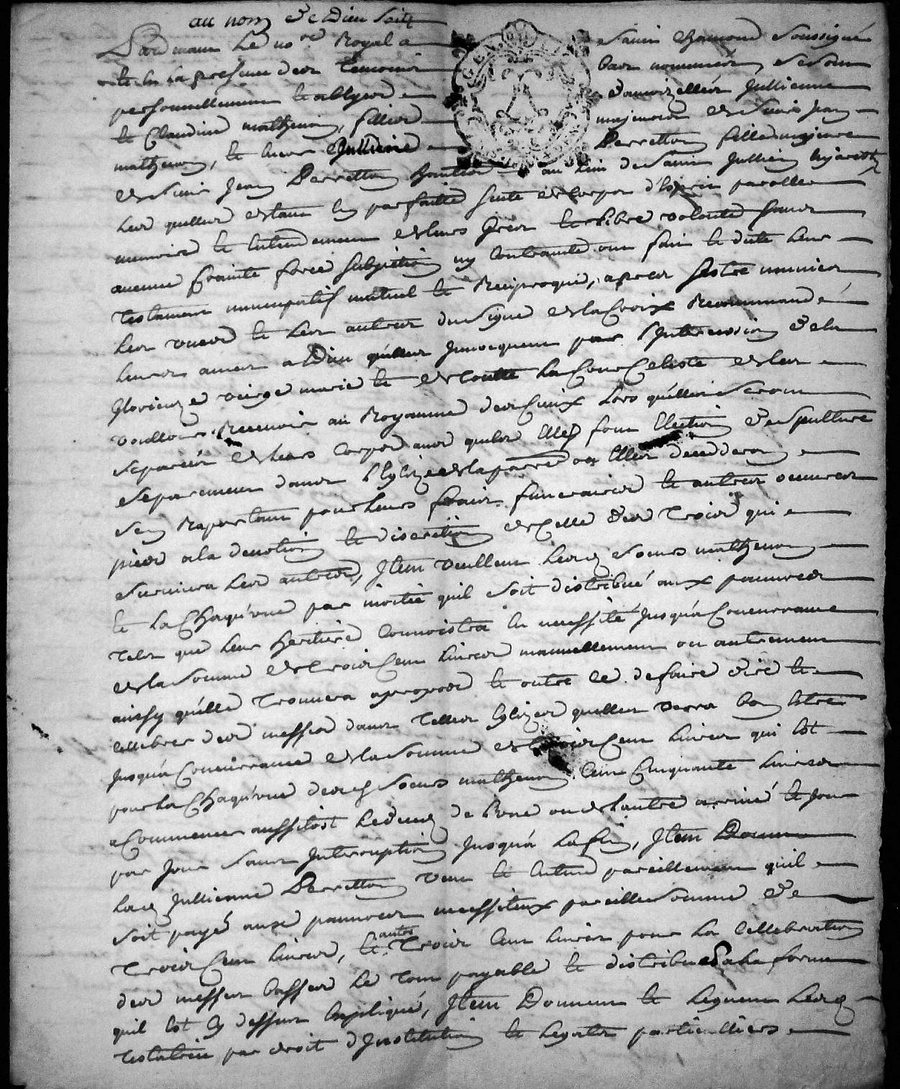 au nom de Dieu soit
Pardevant le no.re Royal a Saint Chamond soussigné
et en la presence des temoins bas nommés, se sont
personnellement establyes damoizelles Jullienne
et Claudine mathevon, filles majeures de sieur Jean
mathevon, et encor Jullienne Perretton fille majeure
de sieur Jean Perretton au lieu de Saint Jullien
Lesquelles estant en parfaitte sente de corps d'esprit parolle
memoire et entendement de leurs grez et libre volonté sans
aucune crainte force subjection ny contrainte ont fait et dicté leur
testament nuncupatif mutuel et Reciproque, apres s'estre munies
les unes et les autres du signe de la Croix Recommandé
leurs ames a Dieu quelles Jnvocquent par l'Jntercession de la
glorieuze vierge marie et de toutte la Cour Celeste de les
vouloir Recevoir au Royaume des Cieux lors quelles seront
separées de leurs corps dont elles font Election de sepulture
separement dans l'Eglize de la parroisse ou elles decedderont
s'en Raportant pour leurs fraix funeraires et autres oeuvres
pies a la devotion et discretion de celle des trois qui
survivra les autres, Jtem veullent lesd. soeurs mathevon
et la Chaqu'une par moitié qu'il soit distribué aux pauvres
tels que leur heritiere connoistra en necessité Jusqu'a Concurrance
de la somme de trois cent livres manuellement ou autrement
ainsy qu'elle trouvera apropos et outre ce de faire dire et
cellebrer des messes dans telles Eglizes quelle verra bon estre
Jusqu'a Concurrance de la somme de trois cent livres qui est
pour la Chaqu'une desd. soeurs mathevon cent Cinquante livres
a Commencer aussitost le deces de l'une ou de l'autre arrivé et Jour
par Jour sans Jnterruption Jusqu'a la fin, Jtem
lad. Jullienne Perretton veut et entend pareillement qu'il
soit payé aux pauvres necessiteux pareille somme de
trois cent livres, et autres trois cent livres pour la cellebration
des messes basses le tout payable et distribué a la forme
qu'il est cy dessus expliqué, Jtem Donnent et leguent lesd.
testatrices par droit d'Jnstitution et legats particulliers